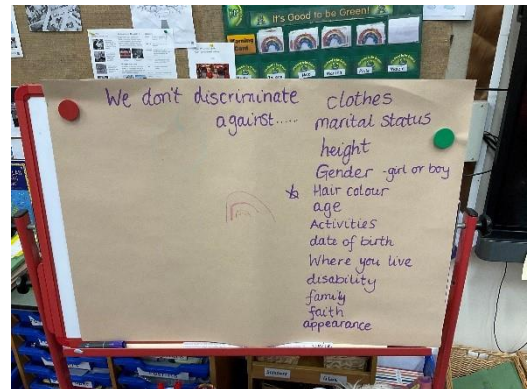 It's Good to be Green!
Warning
Card
We don't discriminate
against.....
clothes
marital status
height
Gender - girl or boy
Hair colour
age
Activities
date of birth
Where you live
disability
family
faith
appearance